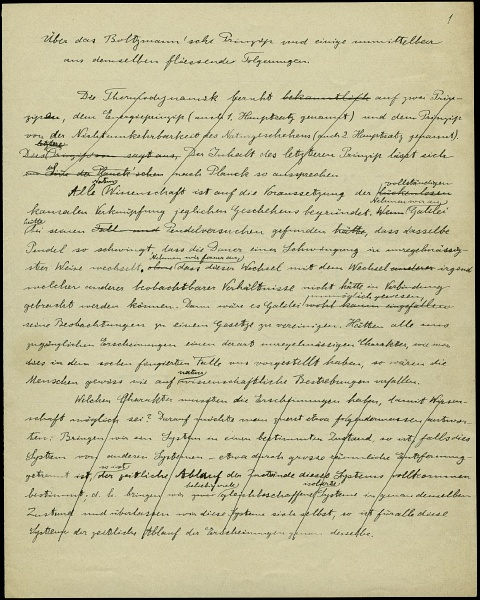 1
Über das Boltzmann'sche Prinzip und einige unmittelbar
aus demselben fliessende Folgerungen.
Die Thermodynamik beruht bekanntlich auf zwei Prin-
zipien, dem Energieprinzip (auch 1. Hauptsatz genannt) und dem Prinzip
von der Nichtumkehrbarkeit des Naturgeschehens (auch 2. Hauptsatz genannt).
Der Inhalt des letzteren Prinzips lässt sich
nach Planck so aussprechen
Alle Wissenschaft ist auf die Voraussetzung der vollständigen
kausalen Verknüpfung jeglichen Geschehens begründet. Nehmen wir an Galilei
hätte bei seinen Pendelversuchen gefunden, dass dasselbe
Pendel so schwingt, dass die Dauer einer Schwingung in unregelmässig-
ster Weise wechselt. Nehmen wir ferner an, dass dieser Wechsel mit dem Wechsel irgend
welcher anderer beobachtbarer Verhältnisse nicht hätte in Verbindung
gebracht werden können. Dann wäre es Galilei unmöglich gewesen,
seine Beobachtungen zu einem Gesetze zu vereinigen. Hätten alle uns
zugänglichen Erscheinungen einen derart unregelmässigen Charakter, wie wir
dies in dem soeben fingierten Falle uns vorgestellt haben, so wären die
Menschen gewiss nie auf naturwissenschaftliche Bestrebungen verfallen.
Welchen Charakter mussten die Erscheinungen haben, damit Wissen-
schaft möglich sei? Darauf möchte man zuerst etwa folgendermassen antwor-
ten: Bringen wir ein System in einen bestimmten Zustand, so ist, falls dies
System von anderen Systemen – etwa durch grosse räumliche Entfernung –
getrennt ist, der zeitliche Ablauf der Zustände dieses Systems vollkommen
bestimmt, d. h. bringen wir zwei beliebig viele gleichbeschaffene isolierte Systeme in genau denselben
Zustand und überlassen wir diese Systeme sich selbst, so ist für alle diese
Systeme der zeitliche Ablauf der Erscheinungen genau derselbe.